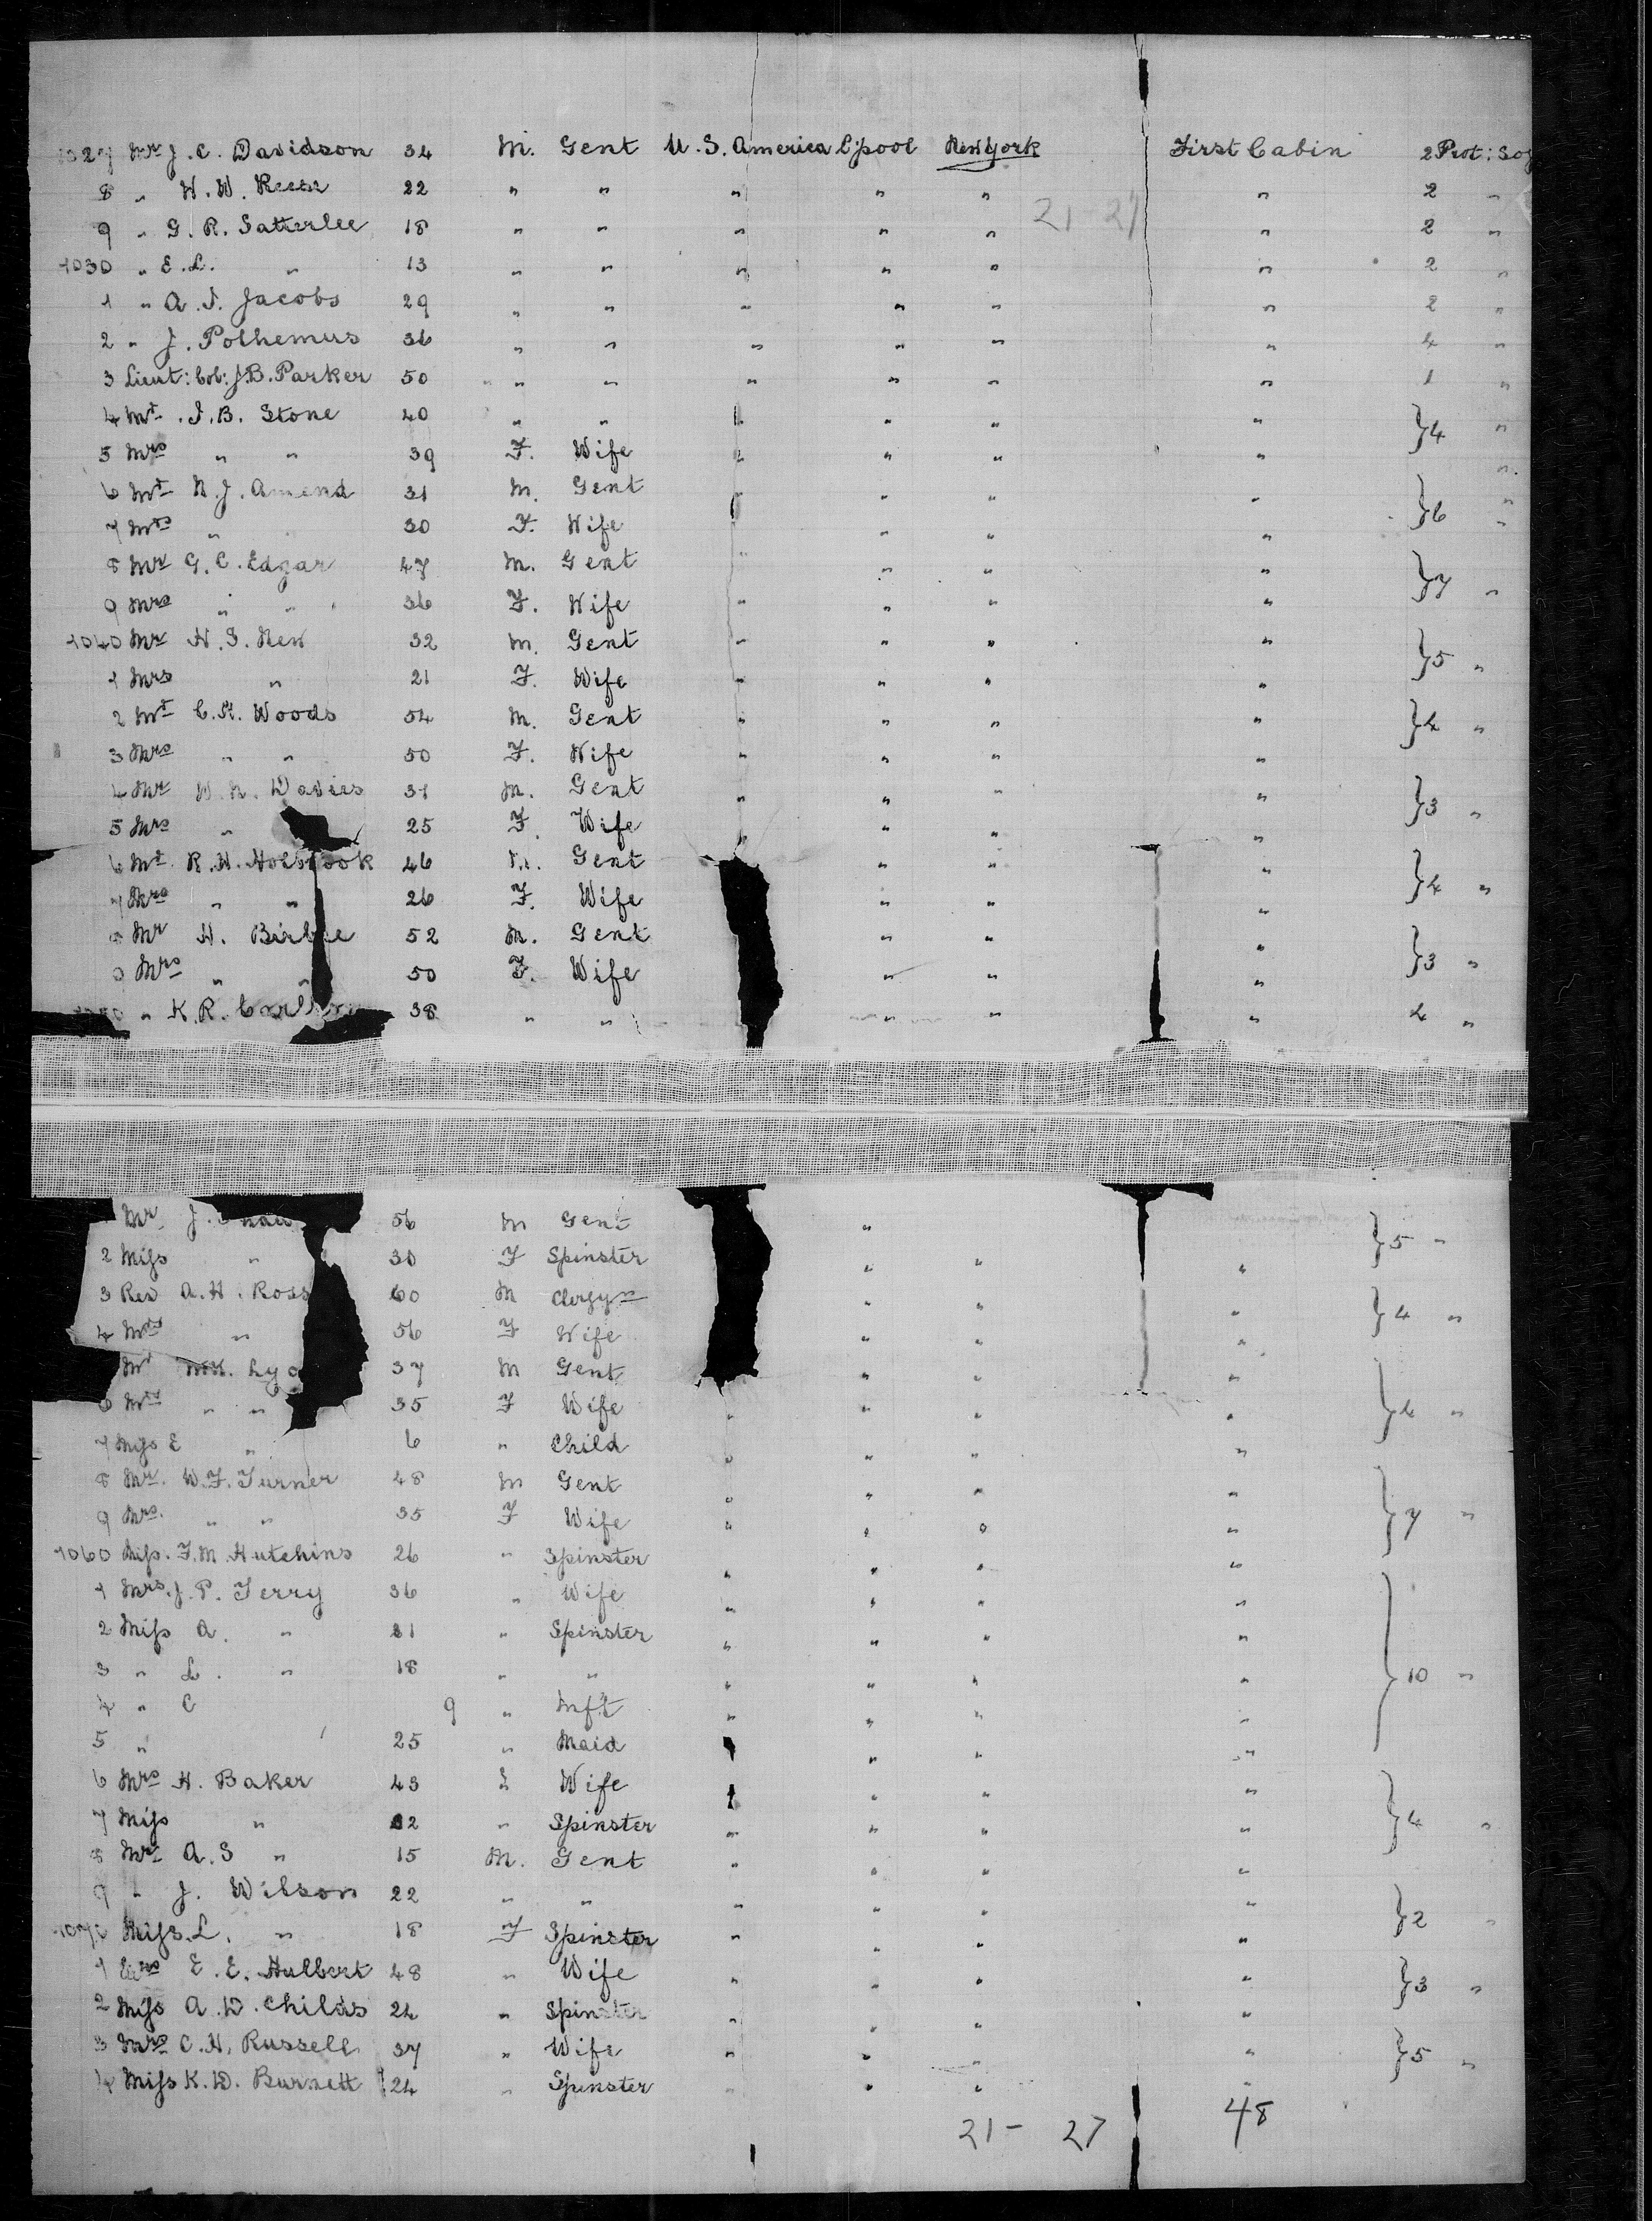 1027 Mr J. C. Davidson 34 M. Gent U. S. America L'pool New York First Cabin 2 Prot: Soj
8 " H. W. Reese 22 " " " " " " 2 "
21 27
9 " G. R. Satterlee 18 " " " " " " 2 "
1030 " E. L. " 13 " " " " " " 2 "
1 " A. S. Jacobs 29 " " " " " " 2 "
2 " J. Polhemus 36 " " " " " " 4 "
3 Lieut: Col: J. B. Parker 50 " " " " " " 1 "
4 Mr J. B. Stone 40 " " " " " } 4 "
5 Mrs " " 39 F. Wife " " " " "
6 Mr N. J. Amend 31 M. Gent " " " } 6 "
7 Mrs " 30 F. Wife " " " "
8 Mr G. C. Edgar 47 M. Gent " " " " } 7 "
9 Mrs " " 36 F. Wife " " " "
1040 Mr H. S. New 32 M. Gent " " " " } 5 "
1 Mrs " 21 F. Wife " " " "
2 Mr C. H. Woods 54 M. Gent " " " " } 4 "
3 Mrs " " 50 F. Wife " " " "
4 Mr W. N. Davies 31 M. Gent " " " " } 3 "
5 Mrs " 25 F. Wife " " "
6 Mr R. H. Holbrook 46 M. Gent " " " } 4 "
7 Mrs " " 26 F. Wife " " "
8 Mr H. 52 M. Gent " " " } 3 "
9 Mrs " " 50 F. Wife " " "
" K. R. 38 " " " " " 4 "
Mr J. 56 M Gent " } 5 "
2 Miss " 30 F Spinster " " "
3 Rev A. H. Ross 60 M Clergyn " " " } 4 "
4 Mrs " 56 F Wife " " "
Mr 37 M Gent " " " } 4 "
6 Mrs " " 35 F Wife " " " "
7 Miss E " 6 " Child " " " "
8 Mr. W. F. Turner 48 M Gent " " " " } 7 "
9 Mrs. " " 35 F Wife " " " "
1060 Miss. F. M. Hutchins 26 " Spinster " " " "
1 Mrs. J. P. Terry 36 " Wife " " " " } 10 "
2 Miss A. " 21 " Spinster " " " "
3 " L. " 18 " " " " " "
4 " C 9 " Inft " " " "
5 " 25 " Maid " " "
6 Mrs H. Baker 43 " Wife " " " } 4 "
7 Miss " 22 " Spinster " " " "
8 Mr A. S " 15 M. Gent " " " "
9 " J. Wilson 22 " " " " " " } 2 "
1070 Miss. L. " 18 F Spinster " " " "
1 Mrs E. E. Hulbert 48 " Wife " " " " } 3 "
2 Miss A. W. Childs 24 " Spinster " " " "
3 Mrs C. H. Russell 37 " Wife " " " " } 5 "
4 Miss K. D. Burnett 24 " Spinster " " " "
21 - 27 48